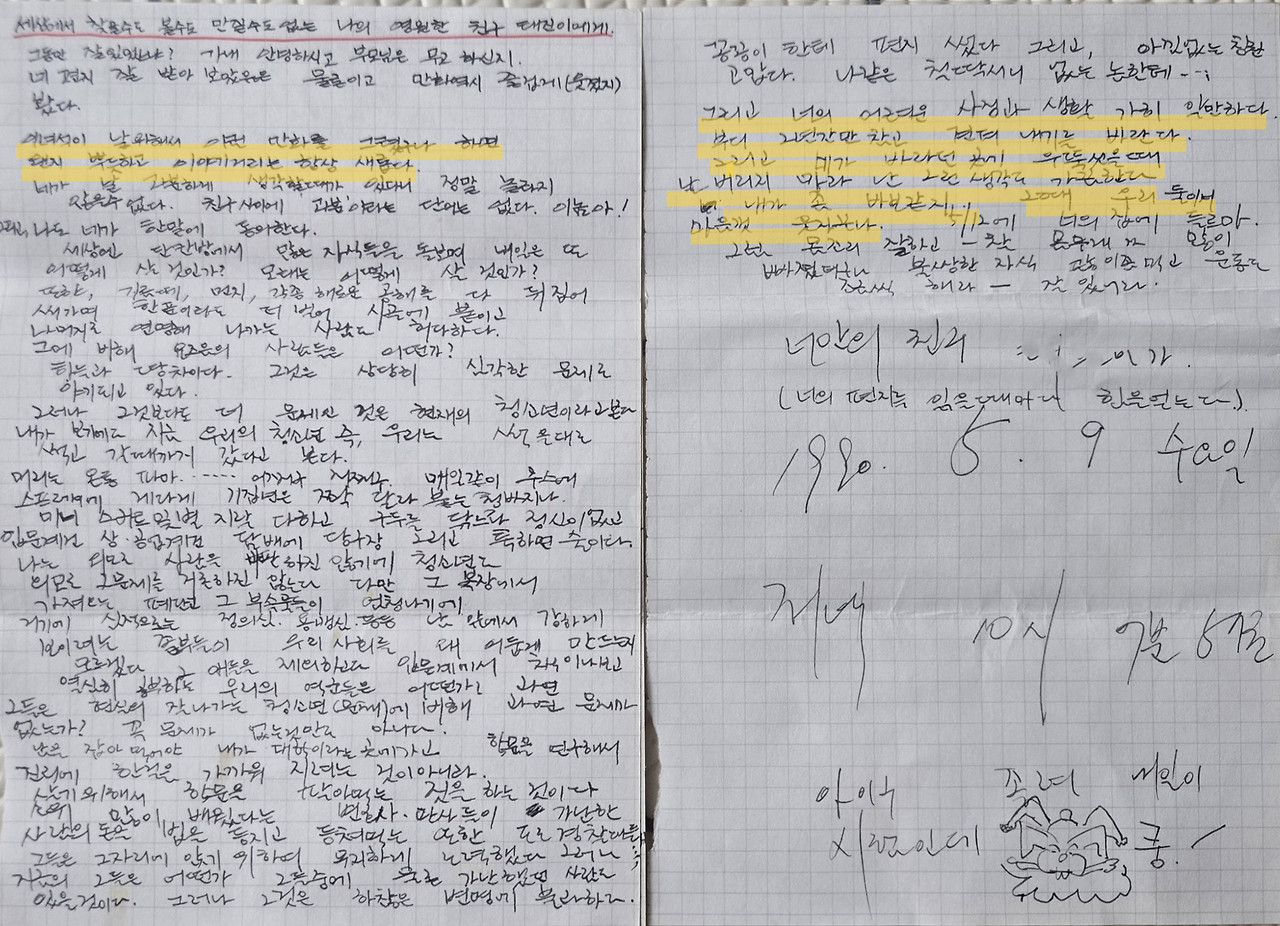 세상에서 찾을수도 볼수도 만질수도 없는 나의 영원한 친구 태진이에게.
그동안 잘있었냐? 가내 안녕하시고 부모님은 무고 하신지.
네 편지 잘 받아 보았음은 물론이고 만화역시 즐겁게(웃겼지)
봤다.
예녀석이 날위해서 이런 만화를 그렸구나 하면
왠지 뿌듯하고 이야기거리는 항상 새롭다.
네가 날 과분하게 생각할때가 있다니 정말 놀라지
않을수 없다. 친구사이에 과분이라는 단어는 없다. 이놈아!
나도 네가 한말에 동의한다.
세상엔 단칸방에서 많은 자식들을 돌보며 내일은 또
어떻게 살 것인가? 모레는 어떻게 살 것인가?
또한, 기름떼, 먼지, 각종 해로운 공해를 다 뒤집어
써가며 한푼이라도 더 벌어 시골에 붙이고
나머지로 연명해 나가는 사람도 허다하다.
그에 비해 요즈음의 사람들은 어떤가?
하늘과 땅차이다. 그것은 상당히 심각한 문제로
야기되고 있다.
그러나 그것보다도 더 문제인 것은 현재의 청소년이라고본다
내가 보기에도 지금 우리의 청소년 즉, 우리는 썩을대로
썩고 갈때까지 갔다고 본다.
머리는 온통 파마. 매일같이 무스에
스프레이에 게다가 기집년은 달라 붙는 청바지나.
미니 스커트 및 별 지랄 다하고 구두를 닦느라 정신이없고
인문계건 상·공업계건 담배에 당구장 그리고 툭하면 술이다.
나는 외모로 사람을 판단하진 않기에 청소년도
외모로 그문제를 거론하진 않는다 다만 그 복장에서
가져오는 폐단과 그 부속물들이 엄청나기에
거기에 심적으로는 정의심. 용맹심 등등 남 앞에서 강하게
보이려는 우리 사회를 왜 어둡게 만드는지
모르겠다 그 애들은 제외하고다 인문계에서
열심히 우리의 역군들은 어떤가? 과연
그들은 현실의 잘나가는 청소년(문제)에 비해 과연 문제가
없는가? 꼭 문제가 없는것만도 아니다.
남을 잡아 먹어야 내가 대학이라는 곳에가고 학문을 연구해서
진리에 한걸음 가까워 지려는 것이아니라.
살기위해서 학문을 것을 하는 것이다
소위 많이 배웠다는 변호사·판사들이 가난한
사람의 돈은 법을 등지고 등쳐먹는 또한
그들은 그자리에 앉기 위하여 무지하게 노력했다 그러나
지금의 그들은 어떤가 그들중에 물론 가난했던 사람도
있을것이다. 그러나 그것은 하찮은 변명에 불과하다.
공공이 한테 편지 썼다 그리고, 아낌없는 칭찬
고맙다. 나같은 칫딱서니 없는 놈한테--;
그리고 너의 어려운 사정과 생활 가히 악만하다.
보다 2년간만 참고 견뎌 내기를 바란다.
그리고 네가 바라던 곳에 우뚝섰을때
난 버리지 마라 난 그런 생각도 가끔한다
내가 좀 바보같지. 20대 우리 둘이서
5/12에 너의 집에 들르마.
그럼 몸조리 잘하고 - 살 몸무게가 많이
빠져졌다는 불쌍한 자식 좀 먹고 운동도
조금씩 해라 - 잘 있거라.
너만의 진리 이가.
(너의 편지를 읽을때마다 힘을얻는다).
1990. 5. 9 수요일
저녁 10시 9분 57초
아이구 쪼녀 내일이
시험인데 쿵.